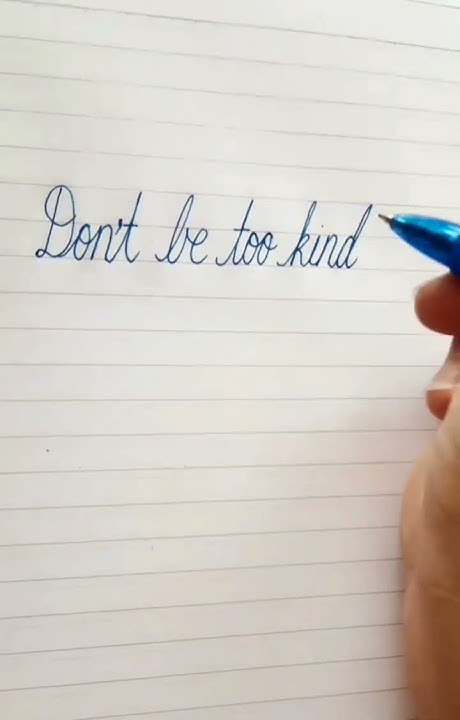 Don't be too kind